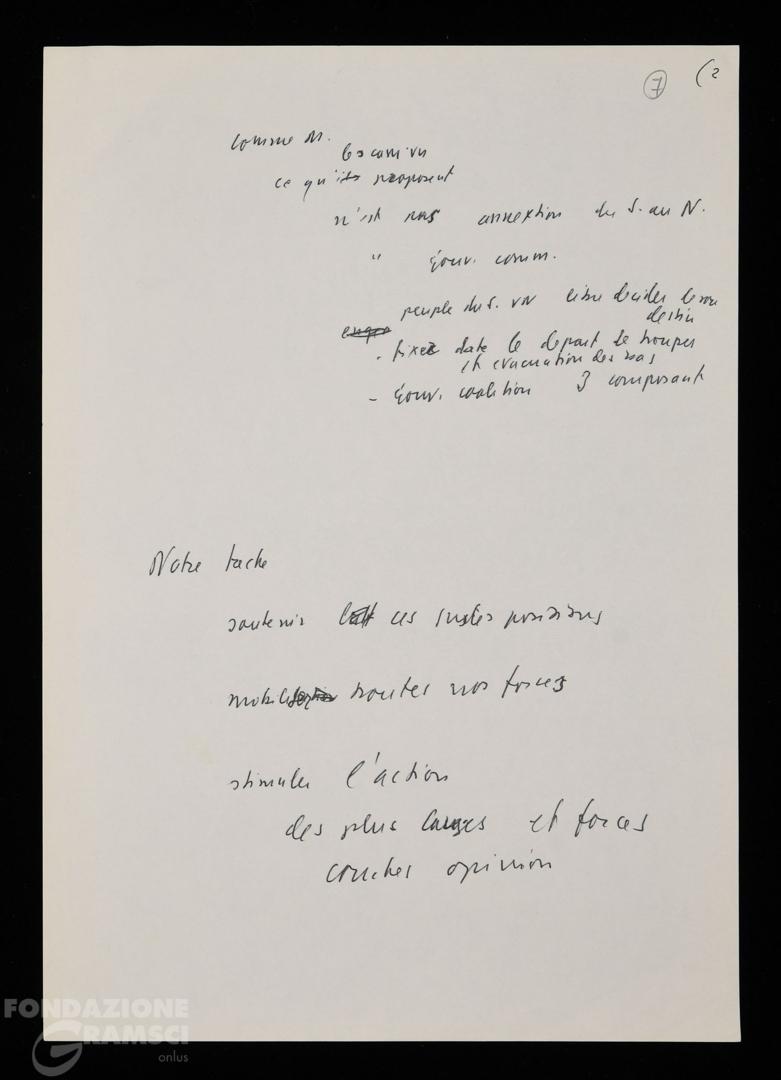 7 (2
comme M.
les cam. vn
ce qu'ils proposent
n'est pas annextion du S. au N.
" Gouv. comm.
peuple du S. vn libre decider de son
destin
- fixer date le depart de troupes
et evacuation des bas
- Gouv. coalition 3 composant
Notre tache
soutenir ces justes positions
mobilis toutes nos forces
stimuler l'action
des plus larges et forces
couches opinion
FONDAZIONE
GRAMSCI
onlus